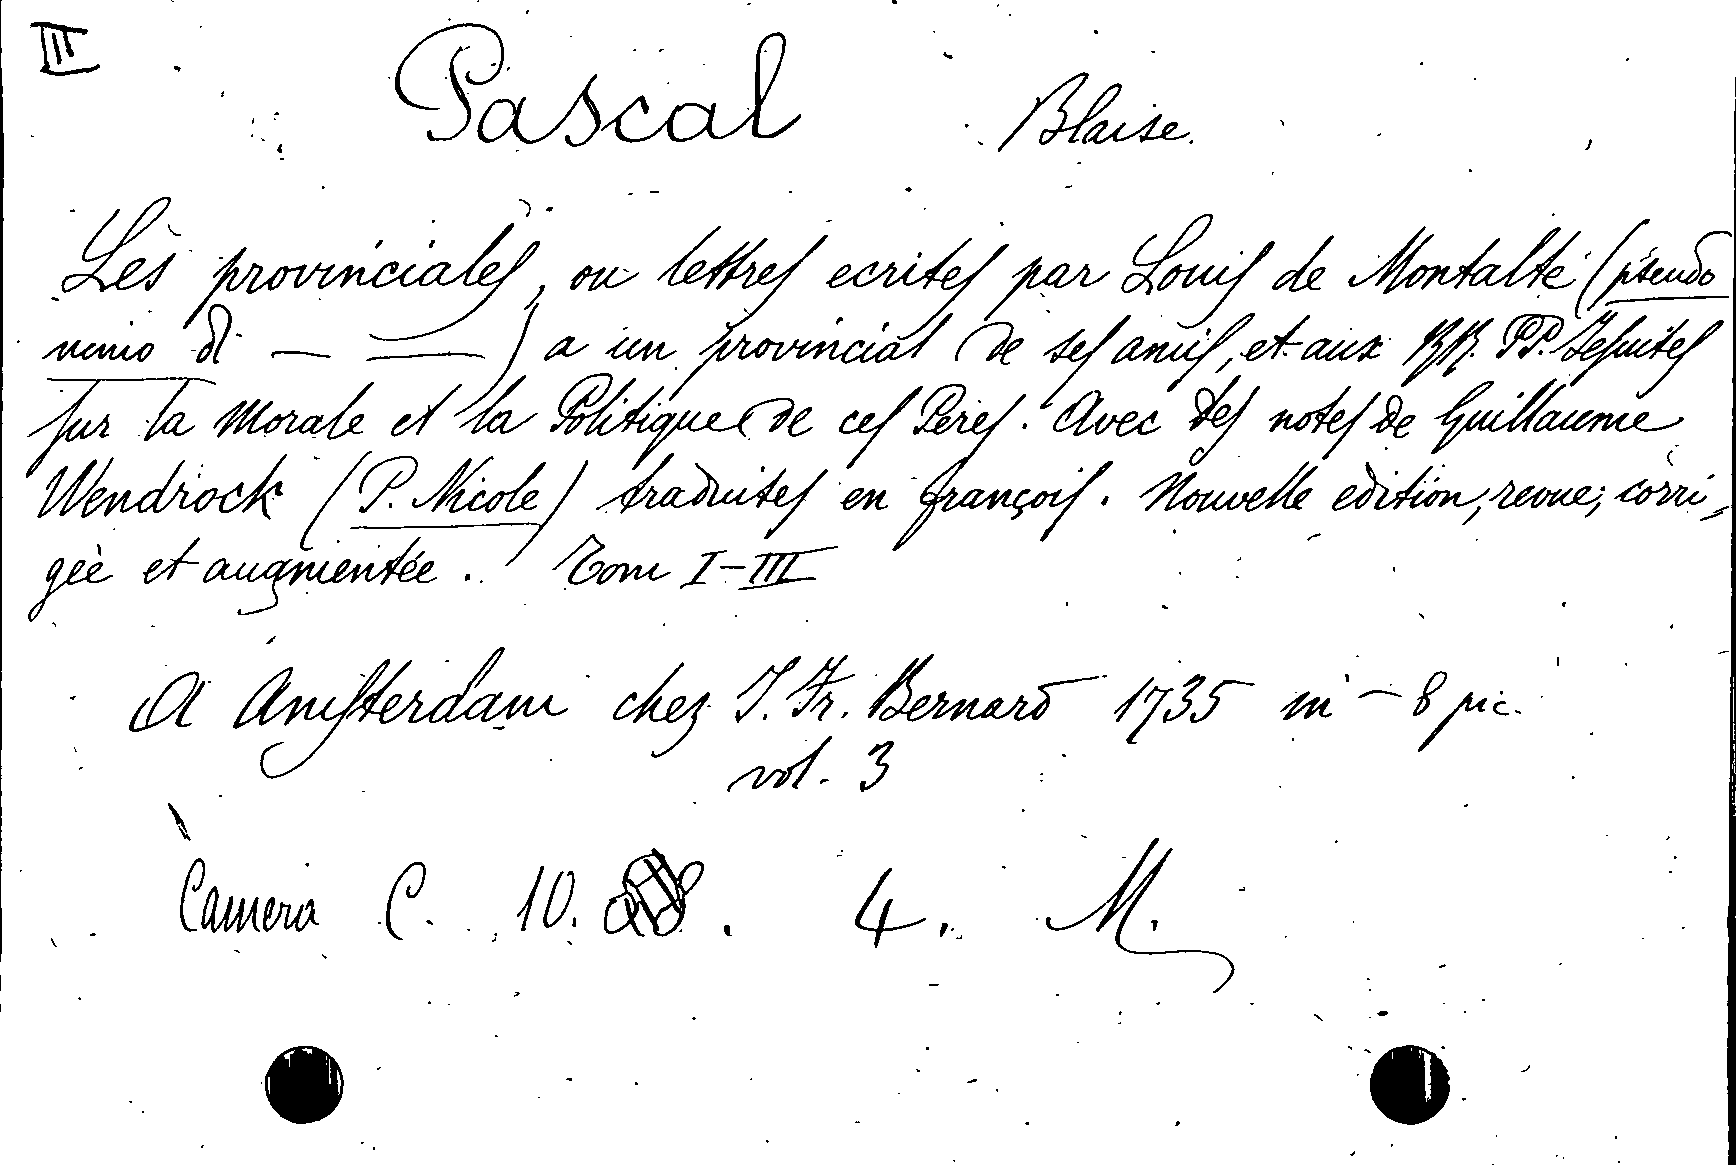 III
Pascal Blaise.
Les provinciales, ou lettres ecrites par Louis de Montalte (pseudo
nimo di — —) a un provincial de ses amis, et aux RR. PP. Jesuites
sur la Morale et la Politique de ces Peres. Avec des notes de Guillaume
Wendrock (P. Nicole) traduites en françois. Nouvelle edition, revue, corri,,
gée et augmentée. Tom I-III
A Amsterdam chez J. Fr. Bernard 1735 in-8 pic.
vol. 3
Camera C. 10. 4. M.